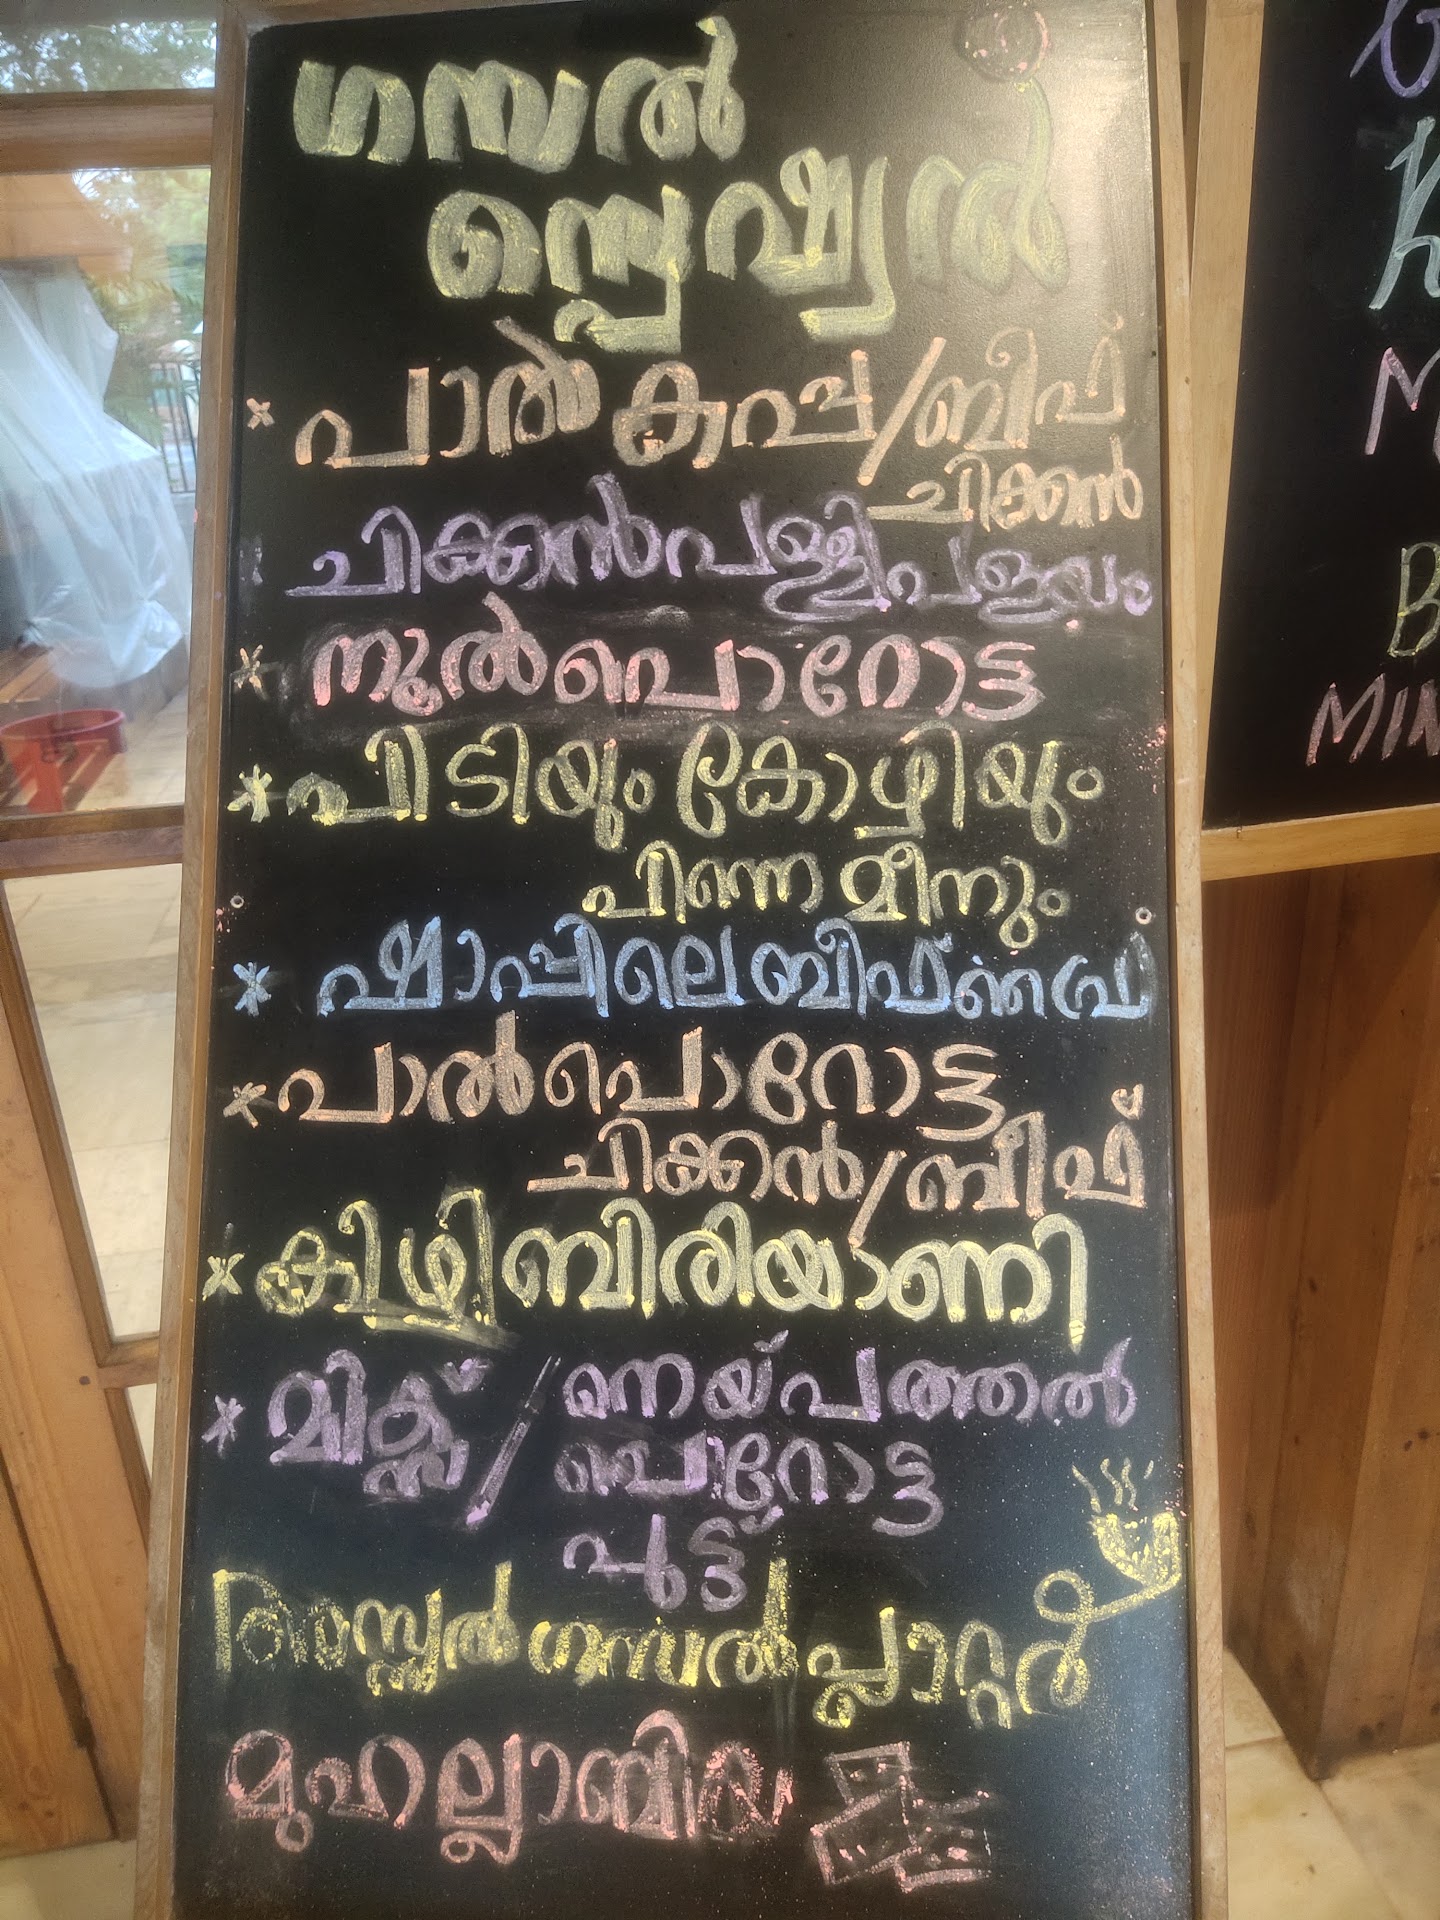 ഗമ്പൽ
സ്പെഷ്യൽ
* പാൽ കപ്പ/ബീഫ്
ചിക്കൻ
ചിക്കൻ പള്ളിപളയം
* നൂൽപൊറോട്ട
* പിടിയും കോഴിയും
പിന്നെ മീനും
* ഷാപ്പിലെ ബീഫ്
* പാൽപൊറോട്ട
ചിക്കൻ/ബീഫ്
* കിഴി ബിരിയാണി
* മിക്സ് / നെയ്പത്തൽ
പൊറോട്ട
പുട്ട്
സ്പെഷ്യൽ ഗമ്പൽ പ്ലാറ്റർ
മുഹല്ലാബിയ
G
K
M
B
MIN